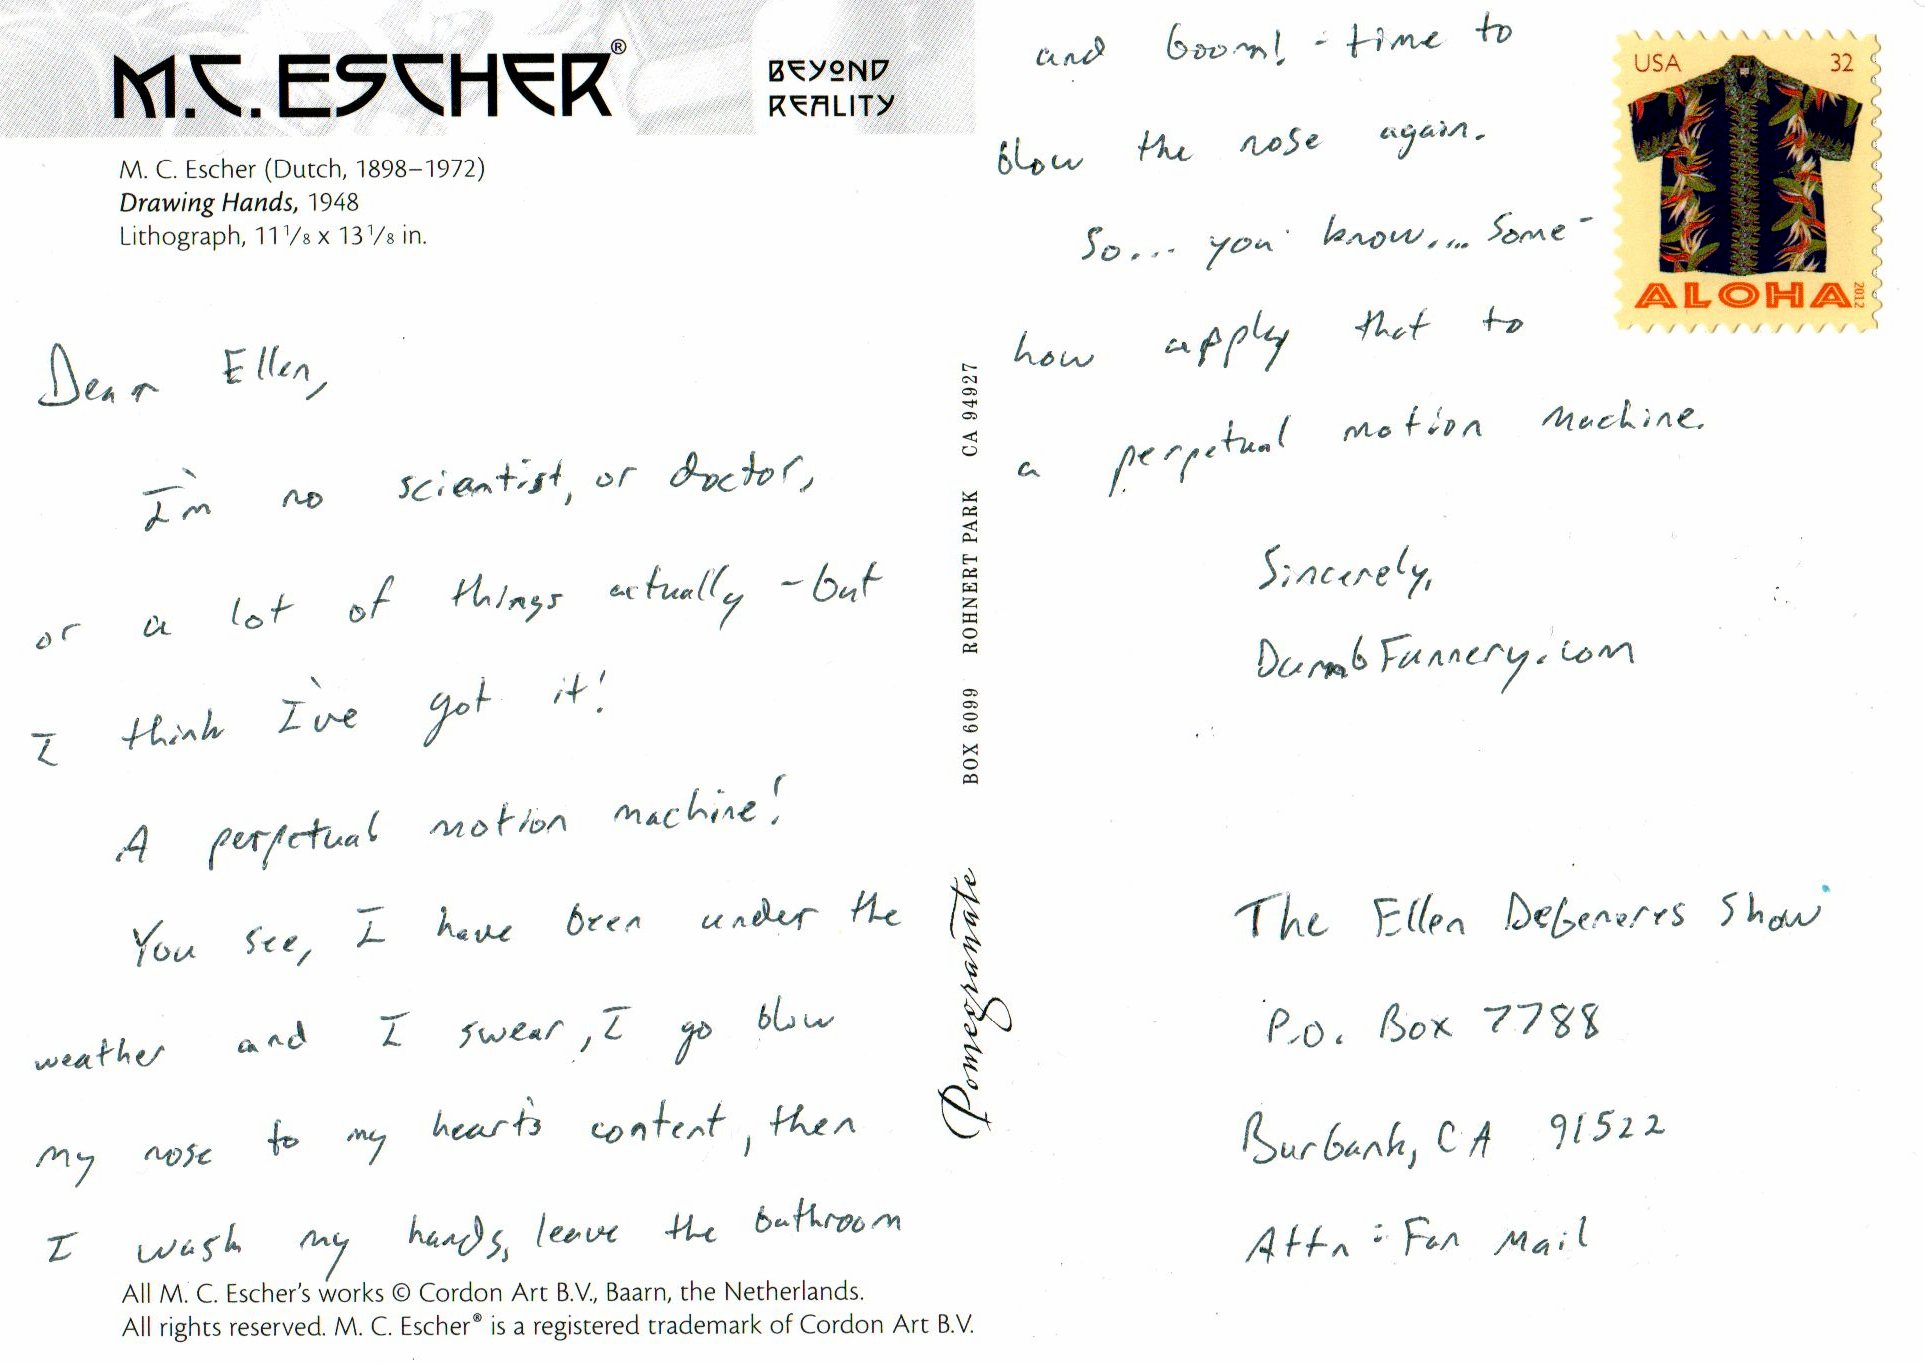 M.C. ESCHER®
BEYOND
REALITY
M. C. Escher (Dutch, 1898–1972)
Drawing Hands, 1948
Lithograph, 11 1/8 x 13 1/8 in.
Dear Ellen,
I'm no scientist, or doctor,
or a lot of things actually - but
I think I've got it!
A perpetual motion machine!
You see, I have been under the
weather and I swear, I go blow
my nose to my heart's content, then
I wash my hands, leave the bathroom
All M. C. Escher's works © Cordon Art B.V., Baarn, the Netherlands.
All rights reserved. M. C. Escher® is a registered trademark of Cordon Art B.V.
Pomegranate BOX 6099 ROHNERT PARK CA 94927
and boom! - time to
blow the nose again.
So... you know.... Some-
how apply that to
a perpetual motion machine.
Sincerely,
DumbFunnery.com
USA 32
ALOHA 2012
The Ellen DeGeneres Show
P.O. Box 7788
Burbank, CA 91522
Attn: Fan Mail